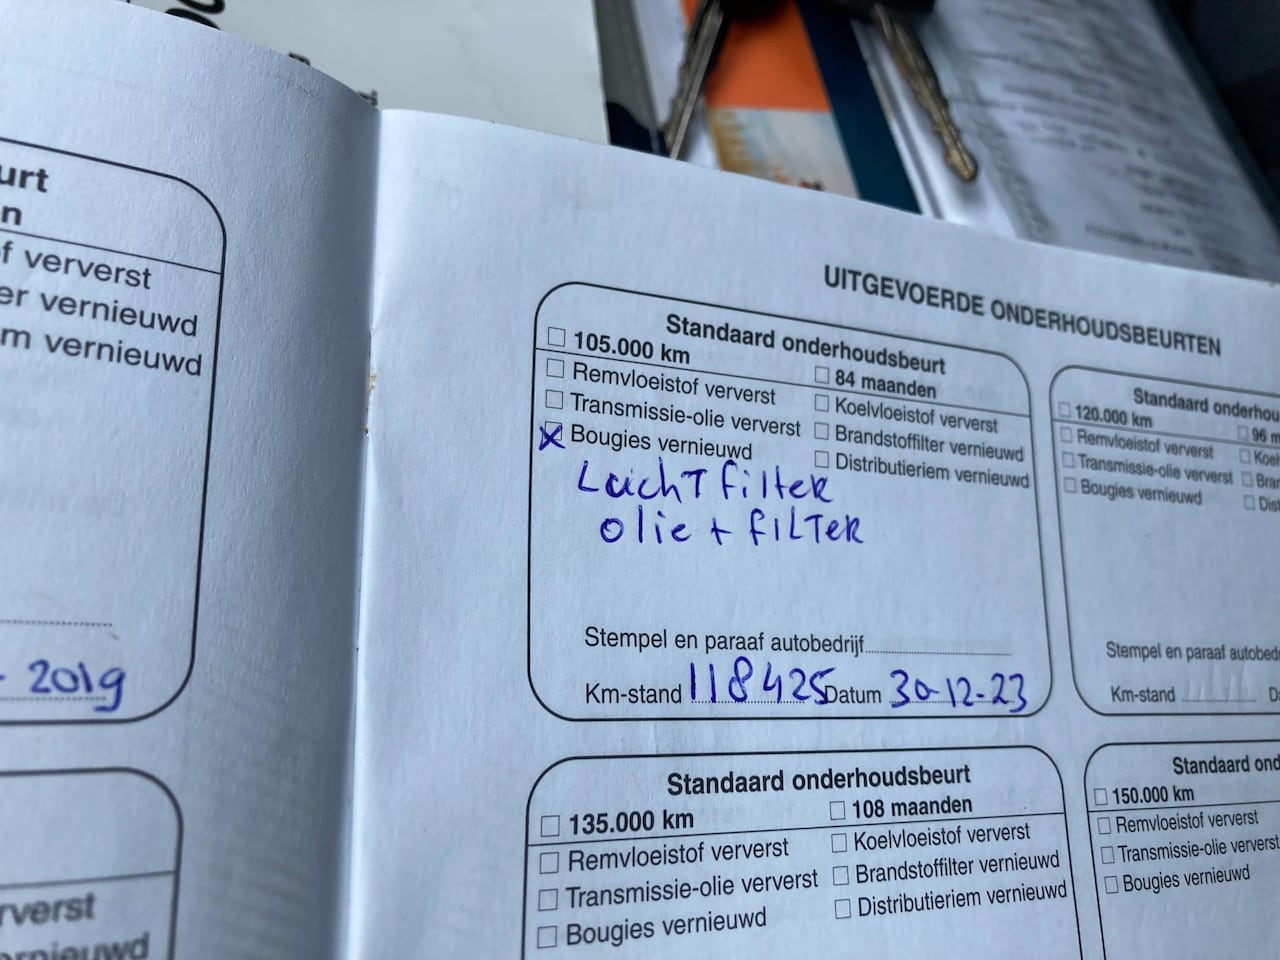 urt
n
f ververst
er vernieuwd
m vernieuwd
- 2019
rverst
ernieuwd
UITGEVOERDE ONDERHOUDSBEURTEN
Standaard onderhoudsbeurt
105.000 km 84 maanden
Remvloeistof ververst Koelvloeistof ververst
Transmissie-olie ververst Brandstoffilter vernieuwd
X Bougies vernieuwd Distributieriem vernieuwd
Luchtfilter
olie + filter
Stempel en paraaf autobedrijf
Km-stand 118425 Datum 30-12-23
Standaard onderhou
120.000 km 96 m
Remvloeistof ververst Koel
Transmissie-olie ververst Bran
Bougies vernieuwd Dist
Stempel en paraaf autobed
Km-stand D
Standaard onderhoudsbeurt
135.000 km 108 maanden
Remvloeistof ververst Koelvloeistof ververst
Transmissie-olie ververst Brandstoffilter vernieuwd
Bougies vernieuwd Distributieriem vernieuwd
Standaard ond
150.000 km
Remvloeistof ververst
Transmissie-olie ververst
Bougies vernieuwd